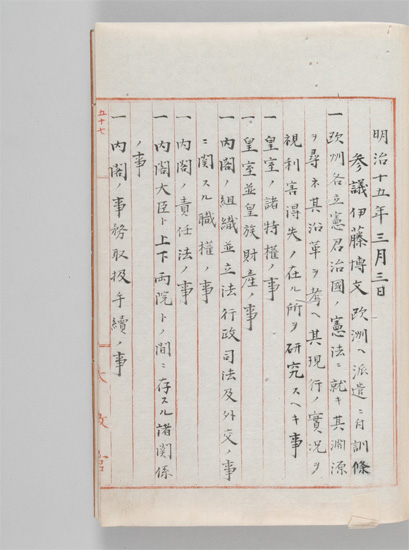 明治十五年三月三日
参議伊藤博文欧洲ヘ派遣ニ付訓條
一欧洲各立憲君治國ノ憲法ニ就キ其淵源
ヲ尋ネ其沿革ヲ考ヘ其現行ノ實況ヲ
視利害得失ノ在ル所ヲ研究スヘキ事
一皇室ノ諸特權ノ事
一皇室並皇族財産ノ事
一内閣ノ組織並立法行政司法及外交ノ事
ニ関スル職權ノ事
一内閣ノ責任法ノ事
一内閣大臣ト上下両院トノ間ニ存スル諸関係
ノ事
一内閣ノ事務取扱手續ノ事
太政官
五十七